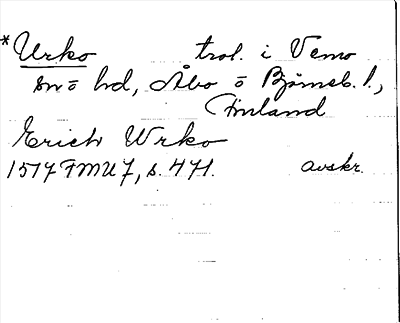 *Urko trol. i Vemo
sn o hd, Åbo o Björneb. l.,
Finland
Erich Wrko
1517 FMU 7, s. 471. avskr.